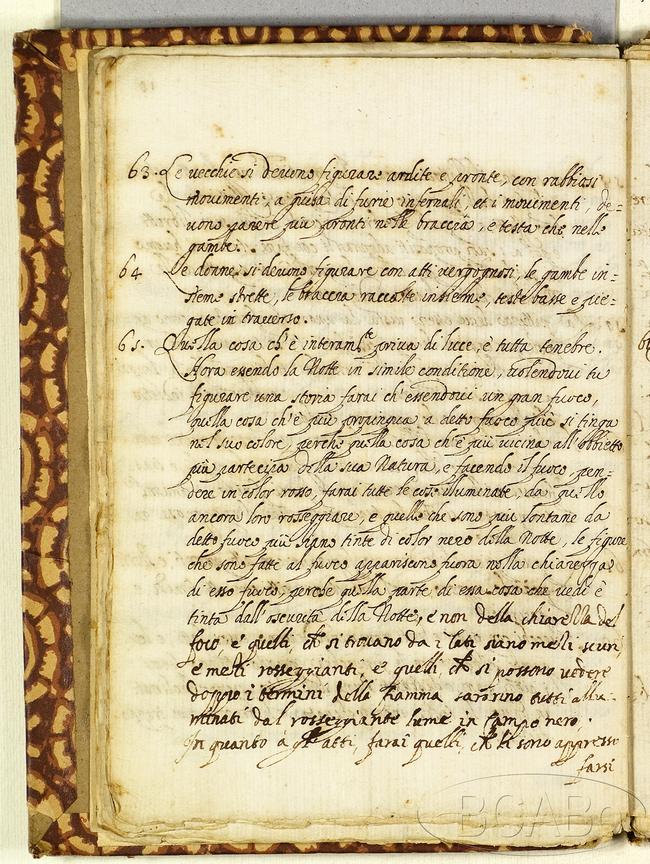 63. Le vecchie si devono figurare ardite e pronte, con rabbiosi
movimenti, a guisa di furie infernali, et i movimenti de=
vono parere più pronti nelle braccia, e testa che nelle
gambe.
64 Le donne si devono figurare con atti vergognosi, le gambe in=
sieme strette, le braccia raccolte insieme, teste basse e pie=
gate in traverso.
65. Quella cosa ch'è interam.te priva di luce, è tutta tenebre.
Hora essendo la Notte in simile conditione, volendoui tu
figurare una storia farai ch'essendoui un gran fuoco,
quella cosa ch'è più propinqua a detto fuoco più si tinga
nel suo colore, perche quella cosa ch'è più vicina all'obbietto
più partecipa della sua Natura, e facendo il fuoco pen=
dere in color rosso, farai tutte le cose illuminate da quello
ancora loro rosseggiare, e quelle che sono più lontane da
detto fuoco più siano tinte di color nero della Notte, le figure
che sono fatte al fuoco appariscono fuora nella chiarezza
di esso fuoco, perche quella parte di essa cosa che vedi è
tinta dall'oscurità della Notte, e non della chiarella del
foco, e quelli, ch si trovano da i lati siano mezi scuri,
e mezi rosseggianti, e quelli, ch si possono vedere
doppo i termini della fiamma saranno tutti allu=
minati dal rosseggiante lume in campo nero.
In quanto à gl'atti, farai quelli, ch li sono appresso
farsi
BCABo